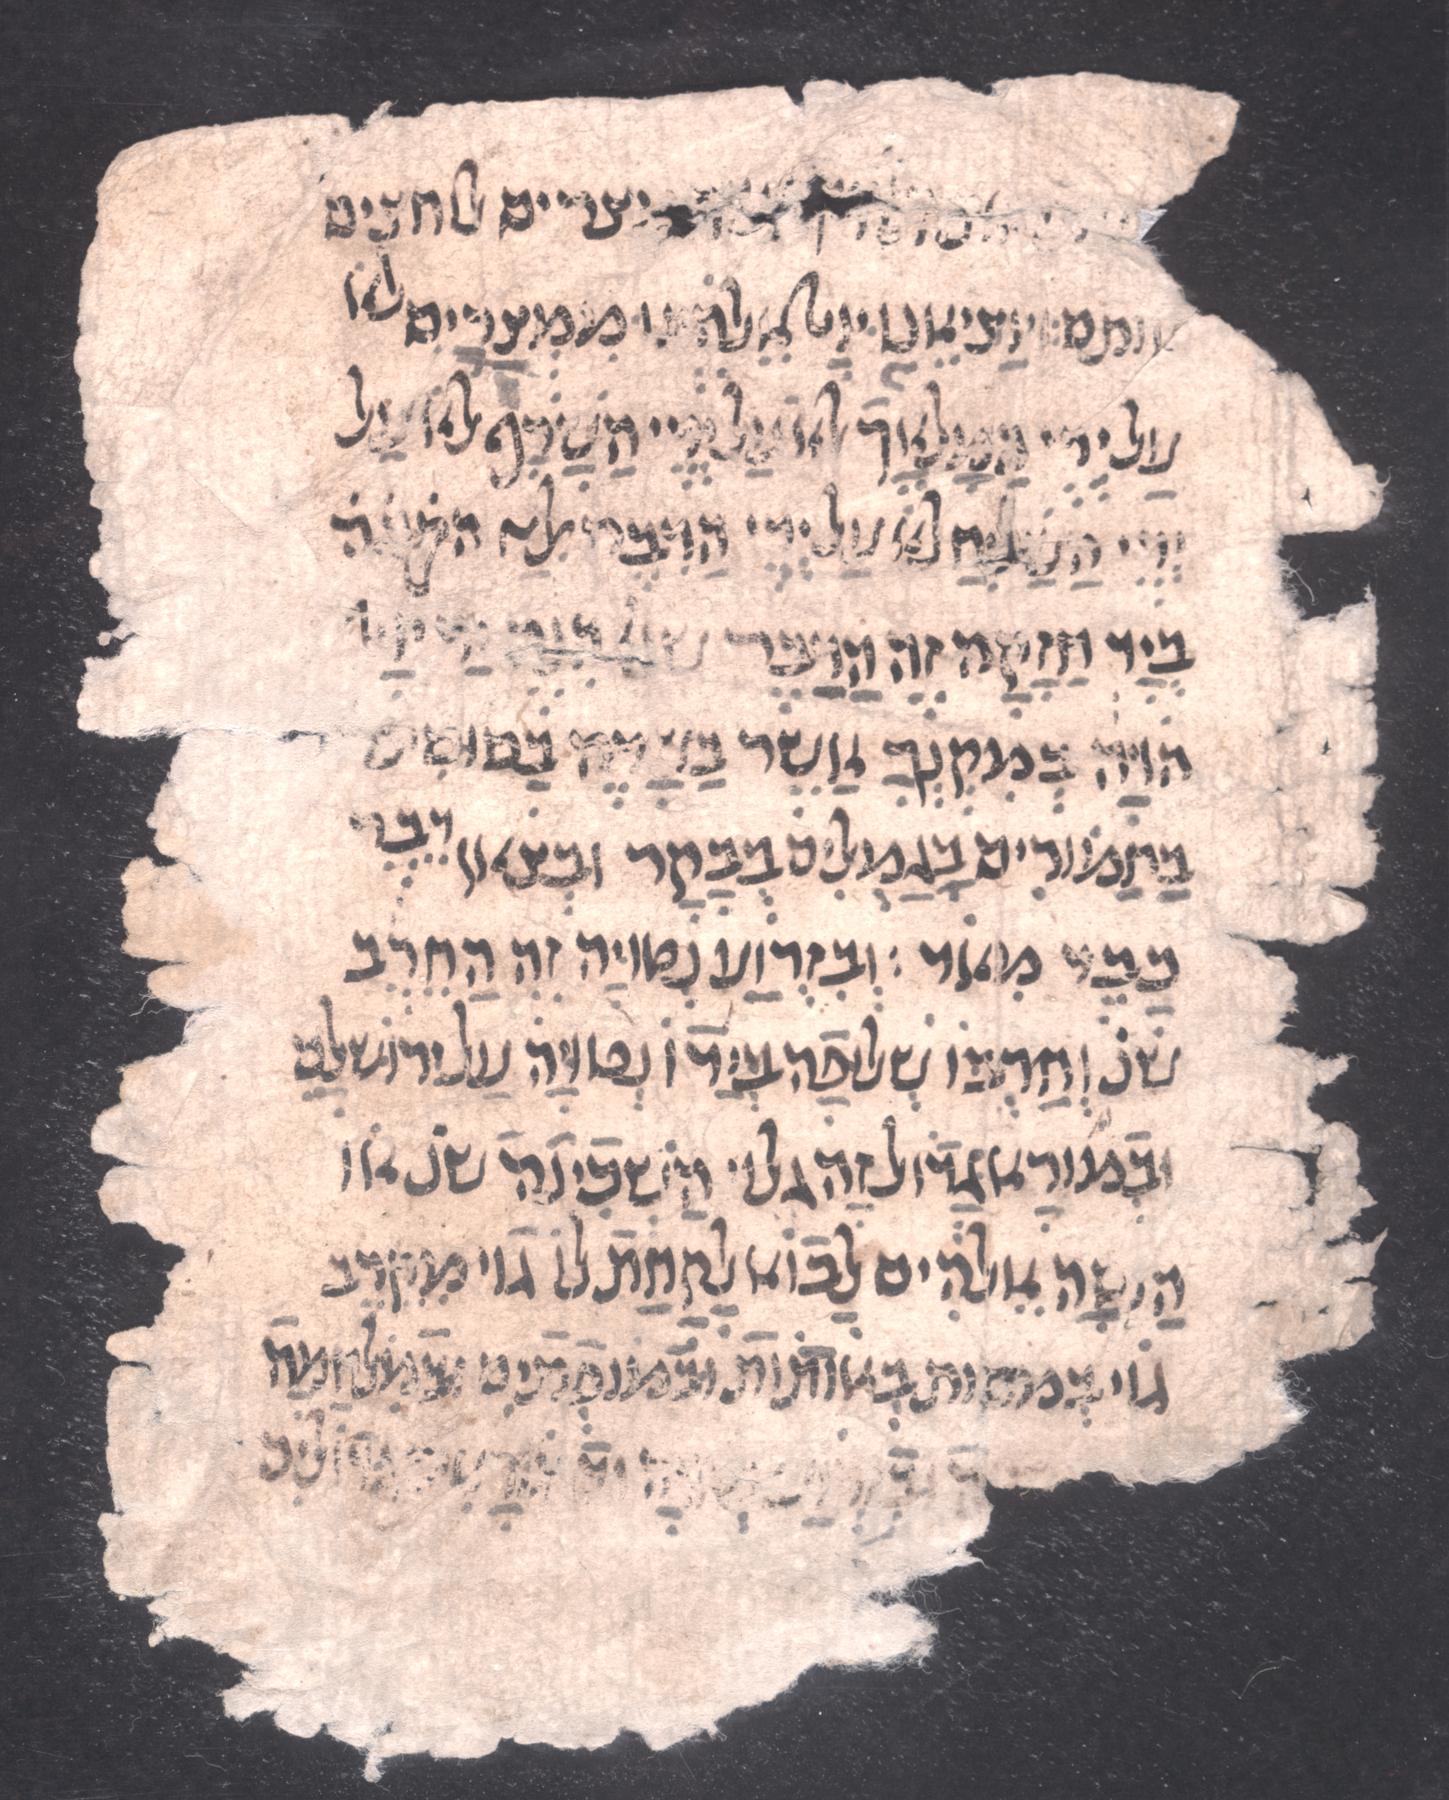 יצרים לחצים
אותם ׃ וַיוצִיאֵנו יְיָ אֱלֹהֵינו מִמִצְרַיִם לו
עַל יְדֵי הַמַלְאָךְ לא עַל יְדֵי הַשָרָף לא עַל
יְדֵי הַשָלִיחַ לא עַל יְדֵי הַדֶבֶר
בְיָד חַזָקָה זֶה הַדֶבֶר
הוֹיָה בְמִקְנְךָ אַשֶר בַשָדֶה בַסוסִים
בַחַמוֹרִים בַגַמַלִים בַבָקָר ובַצאן דֶבֶר
כָבֵד מְאוֹד ׃ וְבִזְרוֹעַ נְטוּיָה זֶה הַחֶרֶב
שנ וְחַרְבוֹ שְלופָה בְיָדוֹ נְטויָה עַל ירושלַם
ובְמוֹרָא גָדוֹל זֶה גִלוי הַשְכִינָה שנ או
הַנִסָה אֱלֹהִים לָבוֹא לָקַחַת לוֹ גוֹי מִקֶרֶב
גוֹי בְמַסות בְאוֹתוֹת ובְמוֹפְתִים ובְמִלְחָמָה